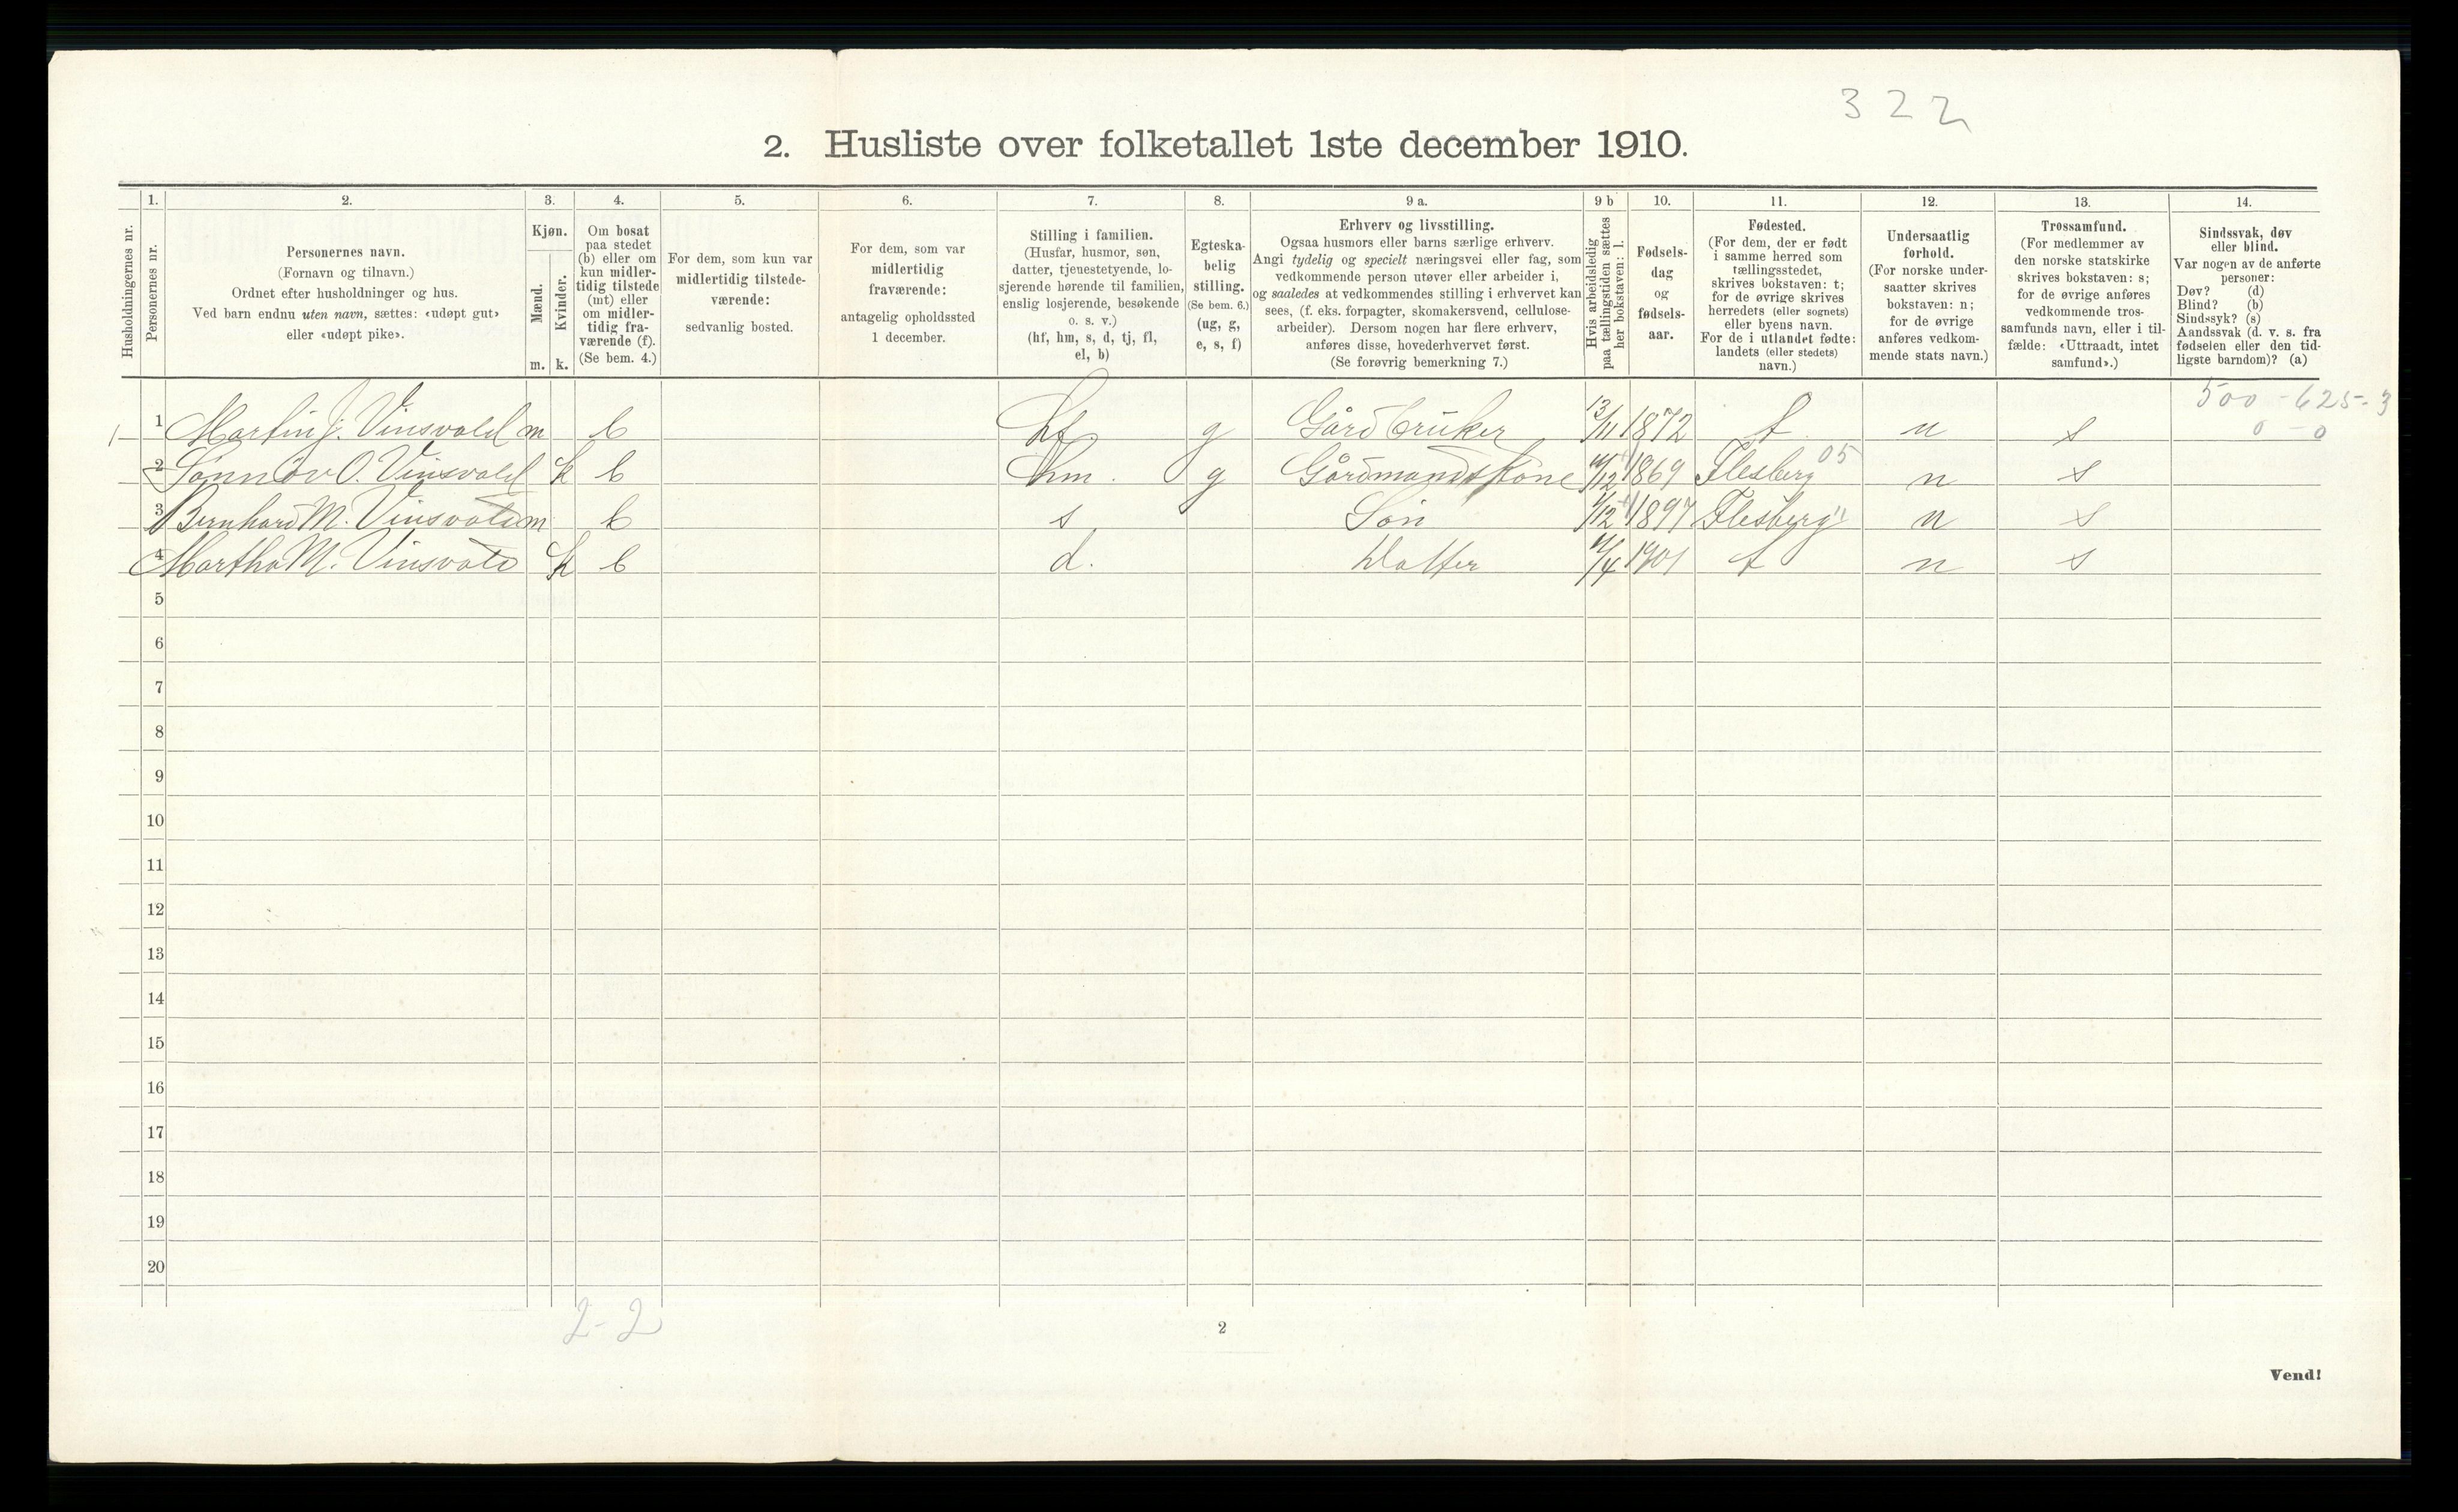 322
2. Husliste over folketallet 1ste december 1910.
Husholdningernes nr.
1. Personernes nr.
2. Personernes navn.
(Fornavn og tilnavn.)
Ordnet efter husholdninger og hus.
Ved barn endnu uten navn, sættes: «udøpt gut»
eller «udøpt pike».
3. Kjøn.
Mænd. m.
Kvinder. k.
4. Om bosat
paa stedet
(b) eller om
kun midler-
tidig tilstede
(mt) eller
om midler-
tidig fra-
værende (f).
(Se bem. 4.)
5. For dem, som kun var
midlertidig tilstede-
værende:
sedvanlig bosted.
6. For dem, som var
midlertidig
fraværende:
antagelig opholdssted
1 december.
7. Stilling i familien.
(Husfar, husmor, søn,
datter, tjenestetyende, lo-
sjerende hørende til familien,
enslig losjerende, besøkende
o. s. v.)
(hf, hm, s, d, tj, fl,
el, b)
8. Egteska-
belig
stilling.
(Se bem. 6.)
(ug, g,
e, s, f)
9 a. Erhverv og livsstilling.
Ogsaa husmors eller barns særlige erhverv.
Angi tydelig og specielt næringsvei eller fag, som
vedkommende person utøver eller arbeider i,
og saaledes at vedkommendes stilling i erhvervet kan
sees, (f. eks. forpagter, skomakersvend, cellulose-
arbeider). Dersom nogen har flere erhverv,
anføres disse, hovederhvervet først.
(Se forøvrig bemerkning 7.)
9 b Hvis arbeidsledig
paa tællingstiden sættes
her bokstaven: l.
10. Fødsels-
dag
og
fødsels-
aar.
11. Fødested.
(For dem, der er født
i samme herred som
tællingsstedet,
skrives bokstaven: t;
for de øvrige skrives
herredets (eller sognets)
eller byens navn.
For de i utlandet fødte:
landets (eller stedets)
navn.)
12. Undersaatlig
forhold.
(For norske under-
saatter skrives
bokstaven: n;
for de øvrige
anføres vedkom-
mende stats navn.)
13. Trossamfund.
(For medlemmer av
den norske statskirke
skrives bokstaven: s;
for de øvrige anføres
vedkommende tros-
samfunds navn, eller i til-
fælde: «Uttraadt, intet
samfund».)
14. Sindssvak, døv
eller blind.
Var nogen av de anførte
personer:
Døv? (d)
Blind? (b)
Sindssyk? (s)
Aandssvak (d. v. s. fra
fødselen eller den tid-
ligste barndom)? (a)
500 - 625 - 3
0 - 0
1 1 Martin J. Vinsvold m b hf g Gårdbruker 13/11 1872 t n s
2 Sønnøv O. Vinsvold k b hm. g Gårdmandskone 1869 Flesberg 05 n s
3 Bernhard M. Vinsvold m b s Søn 1/12 1897 Flesberg " n s
4 Martha M. Vinsvold k b d. Datter 1901 t n s
5
6
7
8
9
10
11
12
13
14
15
16
17
18
19
20
2-2
2
Vend!